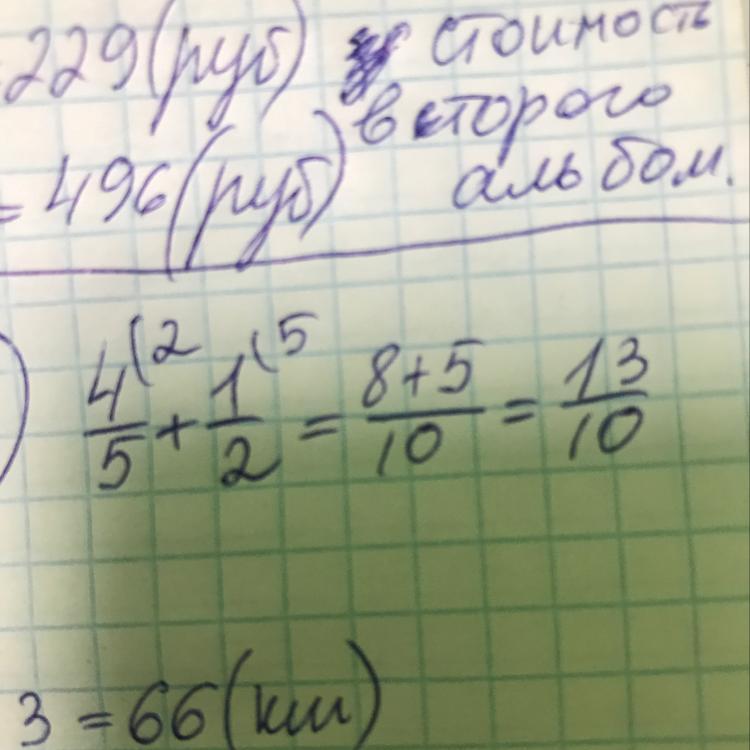 229(руб) стоимость
второго
= 496(руб) альбом.
) 4/5(2 + 1/2(5 = 8+5/10 = 13/10
3 = 66(км)